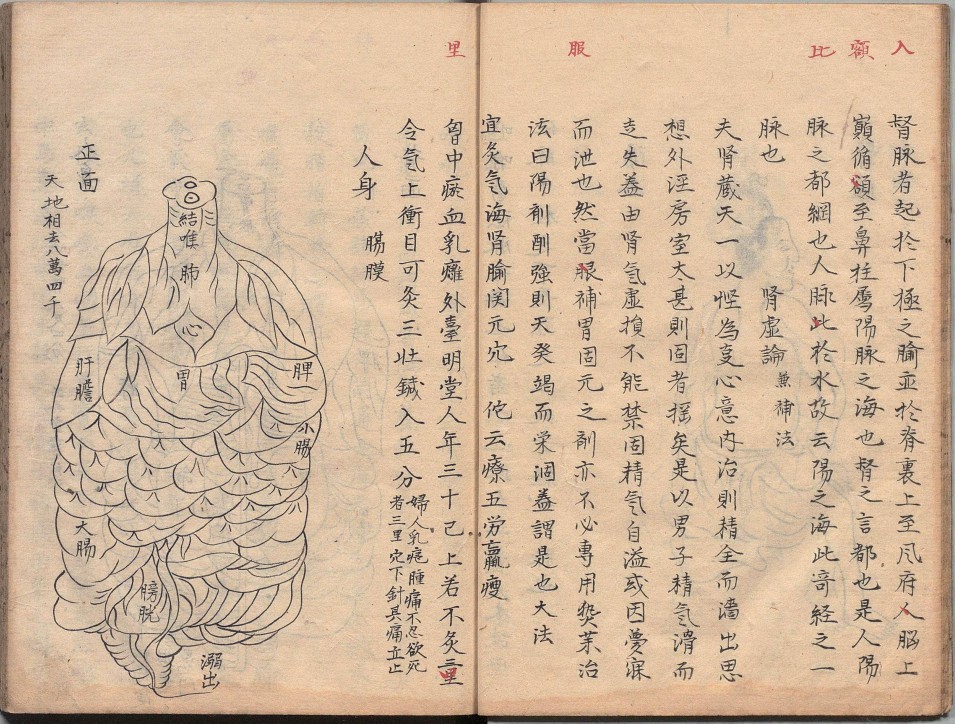 入
額
比
服
里
督脉者起於下極之腧並於脊裏上至風府人脳上
巔循額至鼻柱屬陽脉之海也督之言都也是人陽
脉之都綱也人脉此於水故云陽之海此奇経之一
脉也
腎虚論 兼補法
夫腎蔵天一以慳為事心意内治則精全而濇出思
想外淫房室太甚則固者揺矣是以男子精気滑而
走失盖由腎気虚損不能禁固精気自溢或因夢寐
而泄也然當眼補胃固元之剤亦不必専用薬治
法曰陽剤剛強則天癸竭而栄涸盖謂是也大法
宜灸気海腎腧関元穴 佗云療五労羸瘦
胷中瘀血乳癰外臺明堂人年三十已上若不灸三里
令気上衝目可灸三壮鍼入五分
婦人乳疽腫痛不忍欲死
者三里穴下針其痛立止
人身 腸膜
正面
天地相去八萬四千
結喉
肺
心
胃
脾
肝膽
小腸
大腸
膀胱
溺出